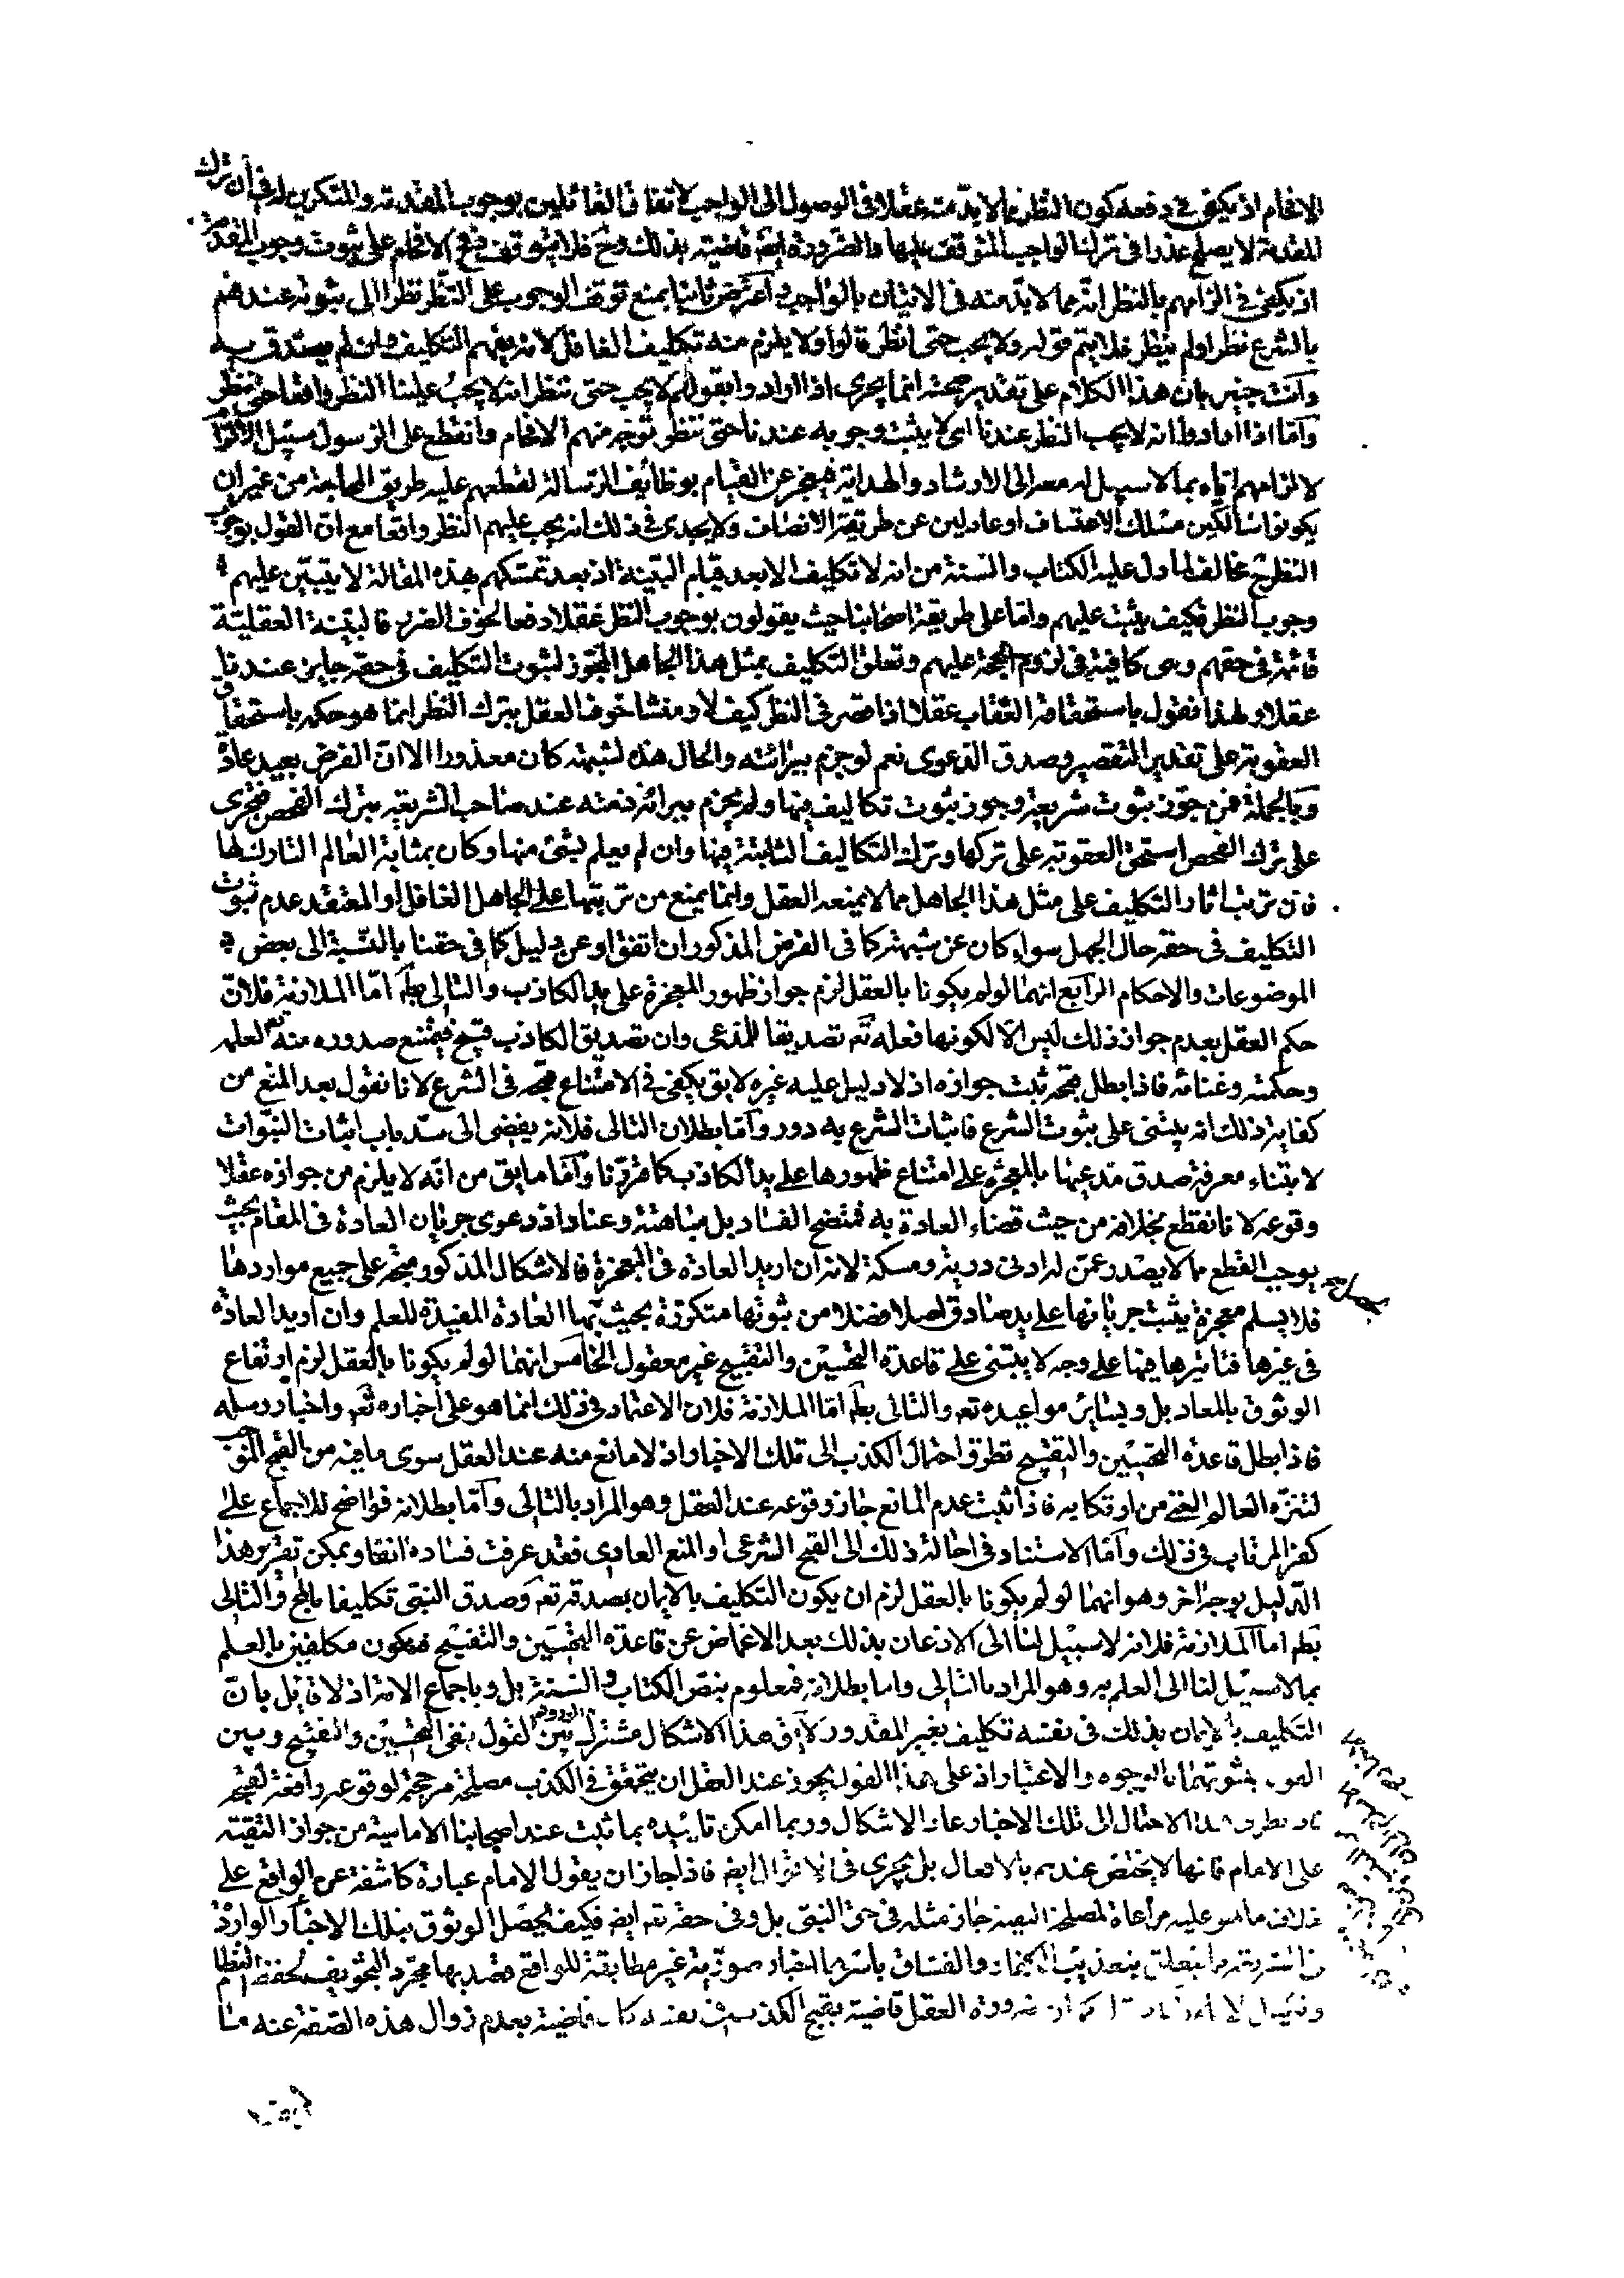 الافحام اذ يكفى فى دفعه كون النظر مما لا بدّ منه عقلا فى الوصول الى الواجب لاتفاق القائلين بوجوب المقدمة والمنكرين له فى أن ترك
المقدمة لا يصلح عذرا فى ترك الواجب المتوقف عليها والضرورة ايضا قاضية بذلك وح فلا يتوقف دفع الافحام على ثبوت وجوب المقدمة
اذ يكفى فى الزامهم بالنظر انّه مما لا بدّ منه فى الاتيان بالواجب واعترض ثانيا بمنع توقف الوجوب على النّظر نظرا الى ثبوته عندهم
بالشرع نظر اولم ينظر فلا يتم قوله ولا يجب حتى انظر قالوا ولا يلزم منه تكليف الغافل لانه يفهم التكليف وان لم يصدق به
وأنت خبير بان هذا الكلام على تقدير صحته انما يجرى اذا ارادوا بقولهم لا يجب حتى ننظر انه لا يجب علينا النظر واقعا حتى ننظر
وأمّا اذا ارادوا انه لا يجب النظر عندنا اى لا يثبت وجوبه عندنا حتى ننظر توجه منهم الافحام وانقطع على الرسول سبيل الالزام
لالزامهم اياه بما لا سبيل له معه الى الارشاد والهداية فيعجز عن القيام بوظائف الرسالة لقطعهم عليه طريق المحاجة من غير ان
يكونوا سالكين مسلك الاعتساف او عادلين عن طريقة الانصاف ولا يجدى فى ذلك انه يجب عليهم النظر واقعا مع انّ القول بوجوب
النظر ح مخالف لما دل عليه الكتاب والسنة من انه لا تكليف الا بعد قيام البيّنة اذ بعد تمسكهم بهذه المقالة لا يتبيّن عليهم
وجوب النظر فكيف يثبت عليهم واما على طريقة اصحابنا حيث يقولون بوجوب النظر عقلا دفعا لخوف الضرر فالبيّنة العقليّة
قائمة فى حقهم وهى كافية فى لزوم الحجة عليهم وتعلق التكليف بمثل هذا الجاهل المجوّز لثبوت التكليف فى حقه جايز عندنا
عقلا ولهذا نقول باستحقاقه العقاب عقلا اذا قصر فى النظر كيف لا ومنشا خوف العقل بترك النظر انما هو حكمه باستحقاق
العقوبة على تقدير التقصير وصدق الدعوى نعم لو جزم ببرائته والحال هذه لشبهة كان معذورا الا انّ الفرض بعيد عادة
وبالجملة فمن جوّز ثبوت شريعة وجوز ثبوت تكاليف فيها ولم يجزم ببرائة ذمته عند صاحب الشريعة بترك الفحص فتجرى
على ترك الفحص استحق العقوبة على تركها وترك التكاليف الثابتة فيها وان لم يعلم بشئ منها وكان بمثابة العالم التارك لها
فان ترتب اثار التكليف على مثل هذا الجاهل مما لا يمنعه العقل وانما يمنع من ترتبها على الجاهل الغافل او المعتقد عدم ثبوت
التكليف فى حقه حال الجهل سواء كان عن شبهة كما فى الفرض المذكور ان اتفق او عن دليل كما فى حقنا بالنسبة الى بعض
الموضوعات والاحكام الرابع انهما لو لم يكونا بالعقل لزم جواز ظهور المعجزة على يد الكاذب والتالى بط امّا الملازمة فلانّ
حكم العقل بعدم جواز ذلك ليس الا لكونها فعله تعالى تصديقا للمدّعى وان تصديق الكاذب قبيح فيمتنع صدوره منه تع لعلمه
وحكمته وغنائه فاذا بطل قبحه ثبت جوازه اذ لا دليل عليه غيره لا يق يكفى فى الامتناع قبحه فى الشرع لانا نقول بعد المنع من
كفاية ذلك انه يبتنى على ثبوت الشرع فاثبات الشرع به دور وأمّا بطلان التالى فلانه يفضى الى سدّ باب اثبات النبوّات
لابتناء معرفة صدق مدعيها بالمعجزة على امتناع ظهورها على يد الكاذب كما قرّرنا وأمّا ما يق من انّه لا يلزم من جوازه عقلا
وقوعه لانا نقطع بخلافه من حيث قضاء العادة به فمتضح الفساد بل مباهتة وعناد اذ دعوى جريان العادة فى المقام بحيث
يوجب القطع مما لا يصدر عمّن له ادنى دربة ومسكة لانه ان اريد العادة فى المعجزة فالاشكال المذكور متجه على جميع مواردها
فلا يسلم معجزة يثبت جريانها على يد صادق اصلا فضلا من ثبوتها متكررة بحيث بها العادة المفيدة للعلم وان اريد العادة
فى غيرها فتاثيرها فيها على وجه لا يبتنى على قاعدة التحسين والتقبيح غير معقول الخامس انهما لو لم يكونا بالعقل لزم ارتفاع
الوثوق بالمعاد بل وبسائر مواعيده تعه والتالى بط امّا الملازمة فلان الاعتماد فى ذلك انما هو على اخباره تعه واخبار رسله
فاذا بطل قاعدة التحسين والتقبيح تطرق احتمال الكذب الى تلك الاخبار اذ لا مانع منه عند العقل سوى ما فيه من القبح الموجب
لتنزه العالم الغنى من ارتكابه فاذا ثبت عدم المانع جاز وقوعه عند العقل وهو المراد بالتالى وأمّا بطلانه فواضح للاجماع على
كفر المرتاب فى ذلك وأمّا الاستناد فى احالة ذلك الى القبح الشرعى او المنع العادى فقد عرفت فساده انفا ويمكن تقرير هذا
الدّليل بوجه اخر وهو انهما لو لم يكونا بالعقل لزم ان يكون التكليف بالايمان بصدقه تعه وصدق النبى تكليفا بالمح والتالى
بط اما الملازمة فلانه لا سبيل لنا الى الاذعان بذلك بعد الاغماض عن قاعدة التحسين والتقبيح فيكون مكلفين بالعلم
بما لا سبيل لنا الى العلم به وهو المراد بالتالى واما بطلانه فمعلوم بنصّ الكتاب والسّنة بل وباجماع الامة اذ لا قايل بانّ
التكليف بالايمان بذلك فى نفسه تكليف بغير المقدور لا يق هذا الاشكال مشترك الورود بين القول بنفى التحسين والتقبيح وبين
القول بثبوتهما بالوجوه والاعتبار اذ على هذا القول يجوز عند العقل ان يتحقق فى الكذب مصلحة مرجحة لوقوعه رافعة لقبحه
فاذا تطرق هذا الاحتمال الى تلك الاخبار عاد الاشكال وربما امكن تاييده بما ثبت عند اصحابنا الامامية من جواز التقية
على الامام فانها لا يختص عندهم بالافعال بل يجرى فى الاقوال ايضا فاذا جاز ان يقول الامام عبارة كاشفة عن الواقع على
خلاف ما هو عليه مراعاة لمصلحة التقية جاز مثله فى حق النبى بل وفى حقه تعه ايضا فكيف يحصل الوثوق بتلك الاخبار الواردة
بتعذيب الكفار والفساق باسرها اخبار صورية غير مطابقة للواقع قصد بها مجرّد التخويف لحفظ النظام
ضرورة العقل قاضية بقبح الكذب قاضية بعدم زوال هذه الصفة عنه